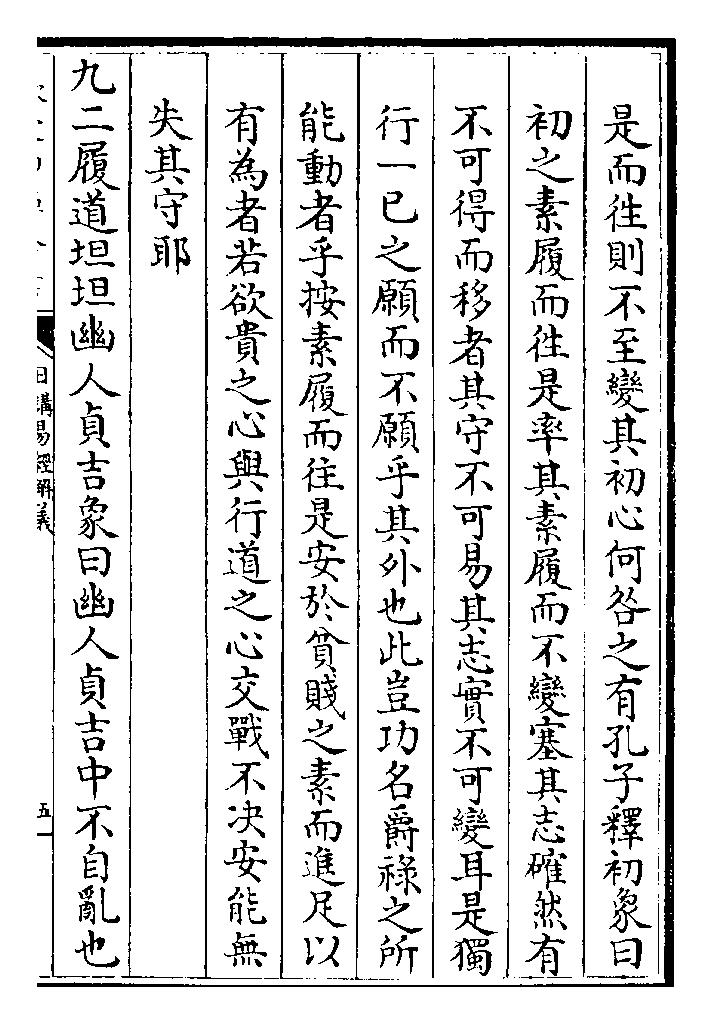 是而徃則不至變其初心何咎之有孔子釋初象曰
初之素履而徃是率其素履而不變塞其志確然有
不可得而移者其守不可易其志實不可變耳是獨
行一已之願而不願乎其外也此豈功名爵祿之所
能動者乎按素履而往是安於貧賤之素而進足以
有為者若欲貴之心與行道之心交戰不决安能無
失其守耶
九二履道坦坦幽人貞吉象曰幽人貞吉中不自亂也
日講易經解義
五